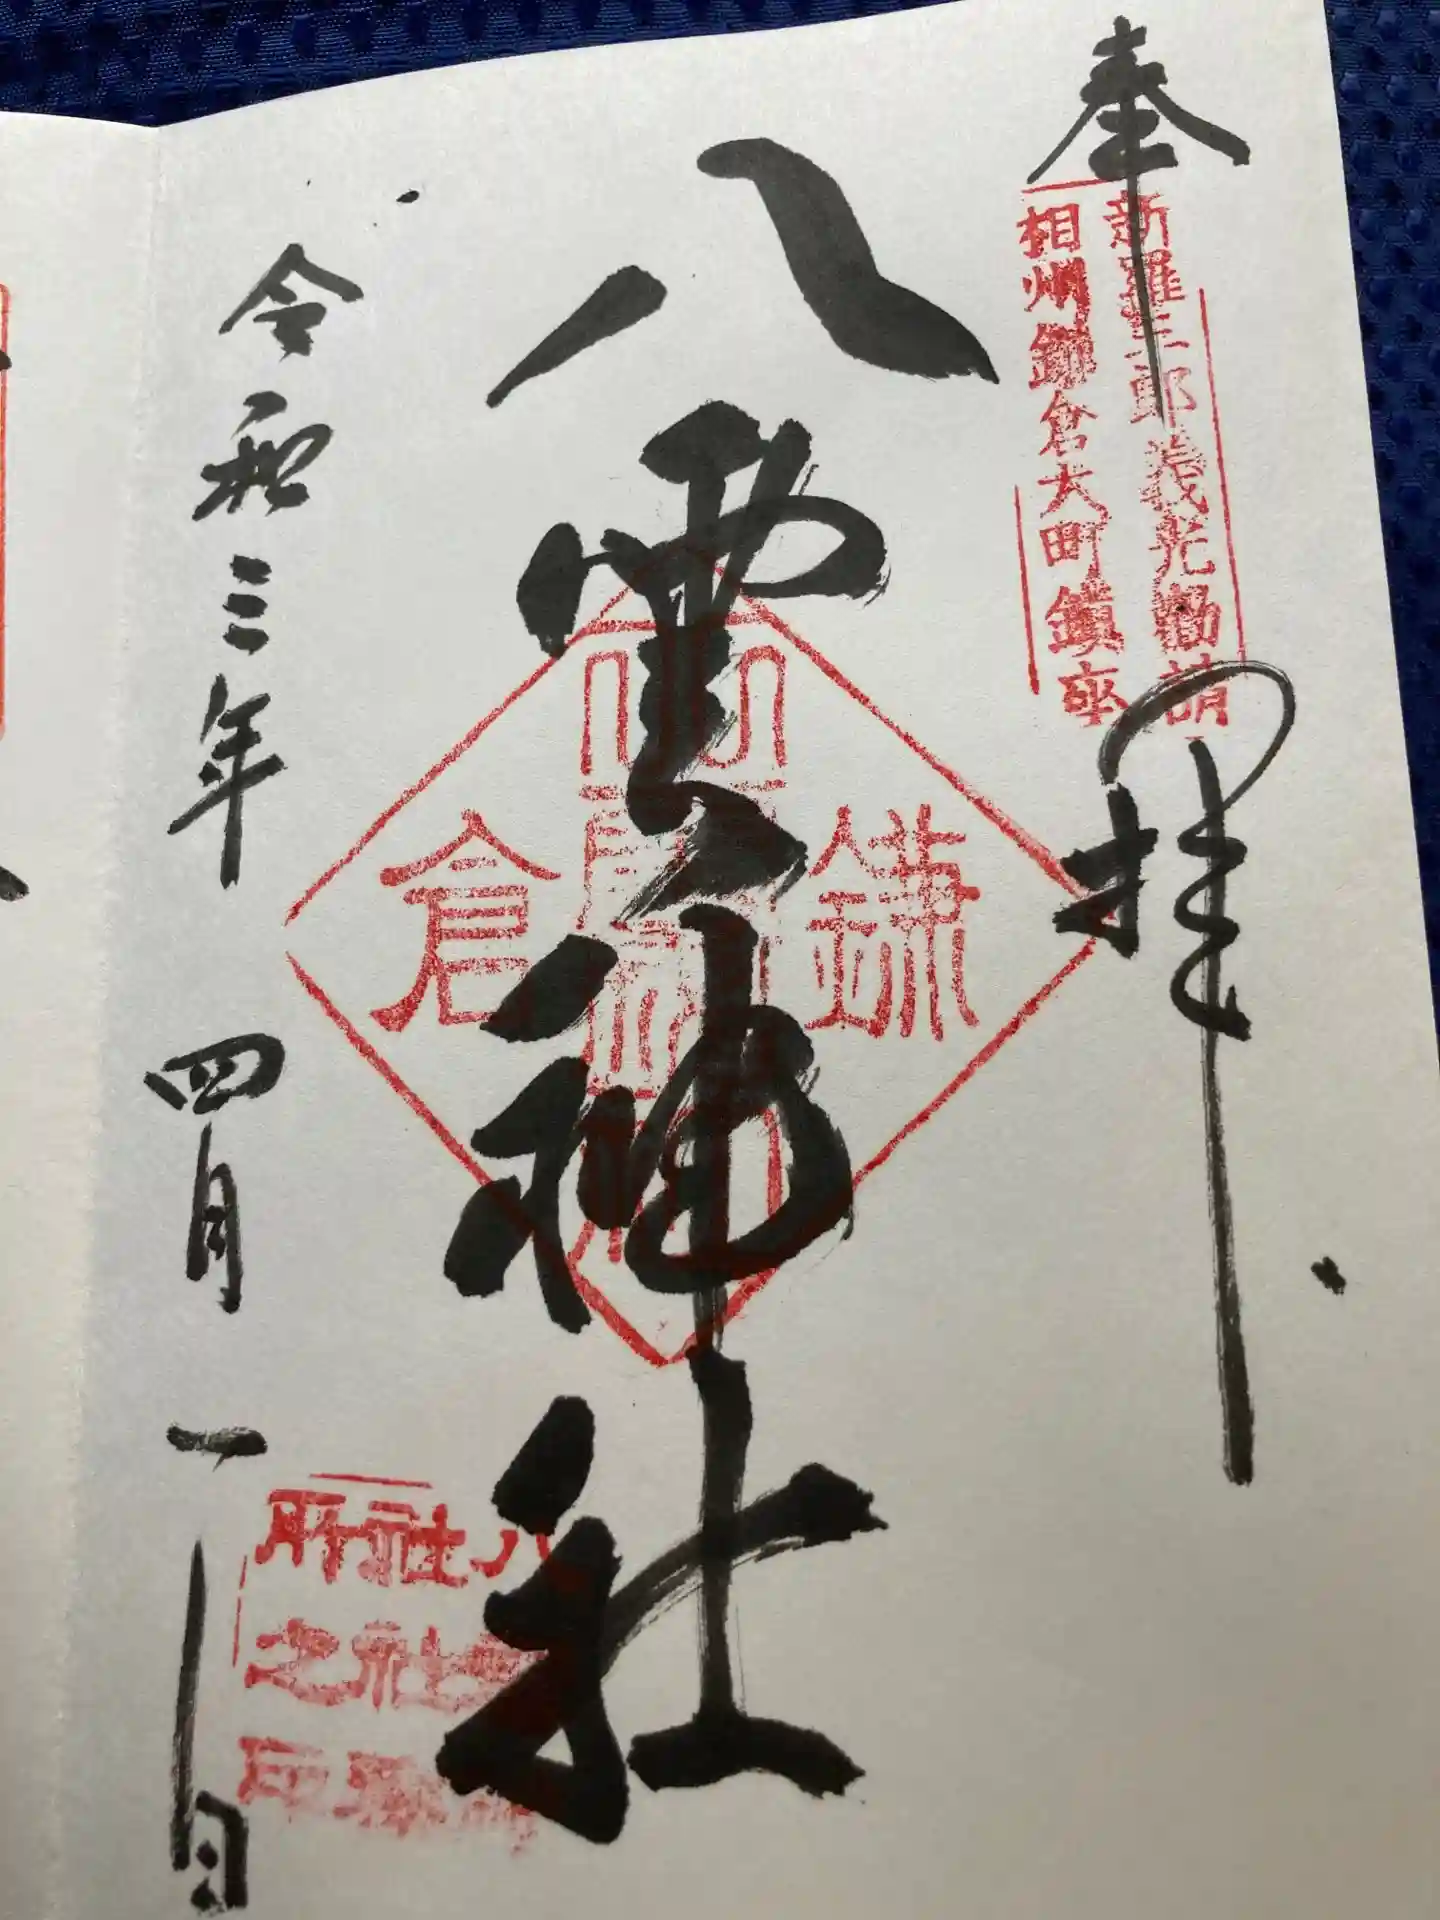 奉拝
新羅三郎義光勧請
相州鎌倉大町鎮座
八雲神社
鎌倉
令和三年 四月 一日